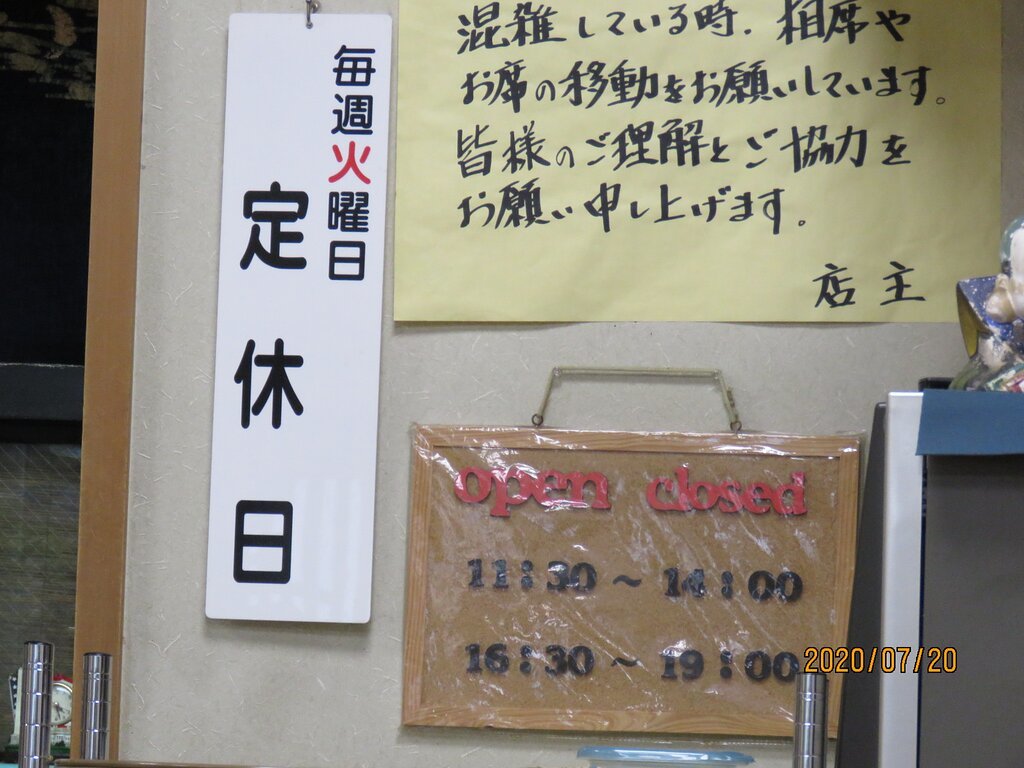 毎週火曜日
定休日
混雑している時．相席や
お席の移動をお願いしています。
皆様のご理解とご協力を
お願い申し上げます。
店主
open closed
11:30 ～ 14:00
16:30 ～ 19:00
2020/07/20